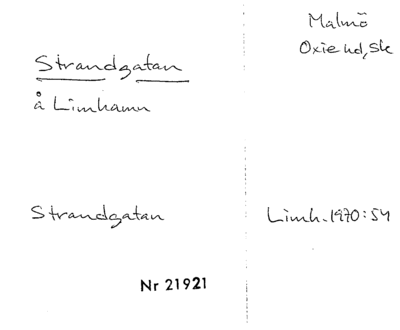 Malmö
Oxie hd, Sk
Strandgatan
å Limhamn
Strandgatan
Limh. 1970:54
Nr 21921